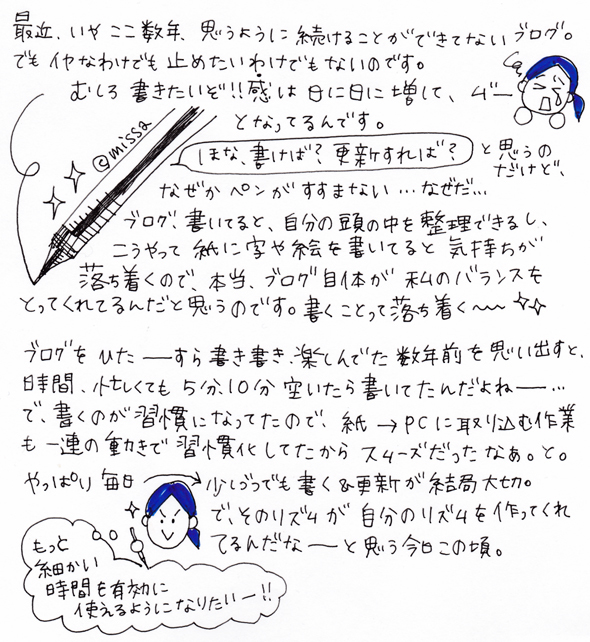 最近、いや ここ数年、思うように 続けることが できてない ブログ。
でも イヤなわけでも 止めたいわけでもないのです。
むしろ 書きたいぞ!!感は 日に日に増して、ムズー
となってるんです。
@missa
ほな、書けば? 更新すれば?
と思うの
だけど、
なぜか ペンが すすまない…なぜだ…
ブログ、書いてると、自分の頭の中を整理できるし、
こうやって 紙に字や絵を書いてると 気持ちが
落ち着くので、本当、ブログ自体が 私のバランスを
とってくれてるんだと思うのです。書くことって落ち着く〜〜
ブログを ひた ーーすら書き書き、楽しんでた 数年前を思い出すと、
時間、忙しくても 5分、10分 空いたら書いてたんだよねー…
で、書くのが習慣になってたので、紙 → PCに取り込む作業
も 一連の動きで 習慣化してたから スムーズだったなぁ。と。
やっぱり 毎日 → 少しづつでも 書く&更新が結局大切。
で、そのリズムが 自分のリズムを作ってくれ
てるんだなーと思う今日この頃。
もっと
細かい
時間を有効に
使えるようになりたいー!!